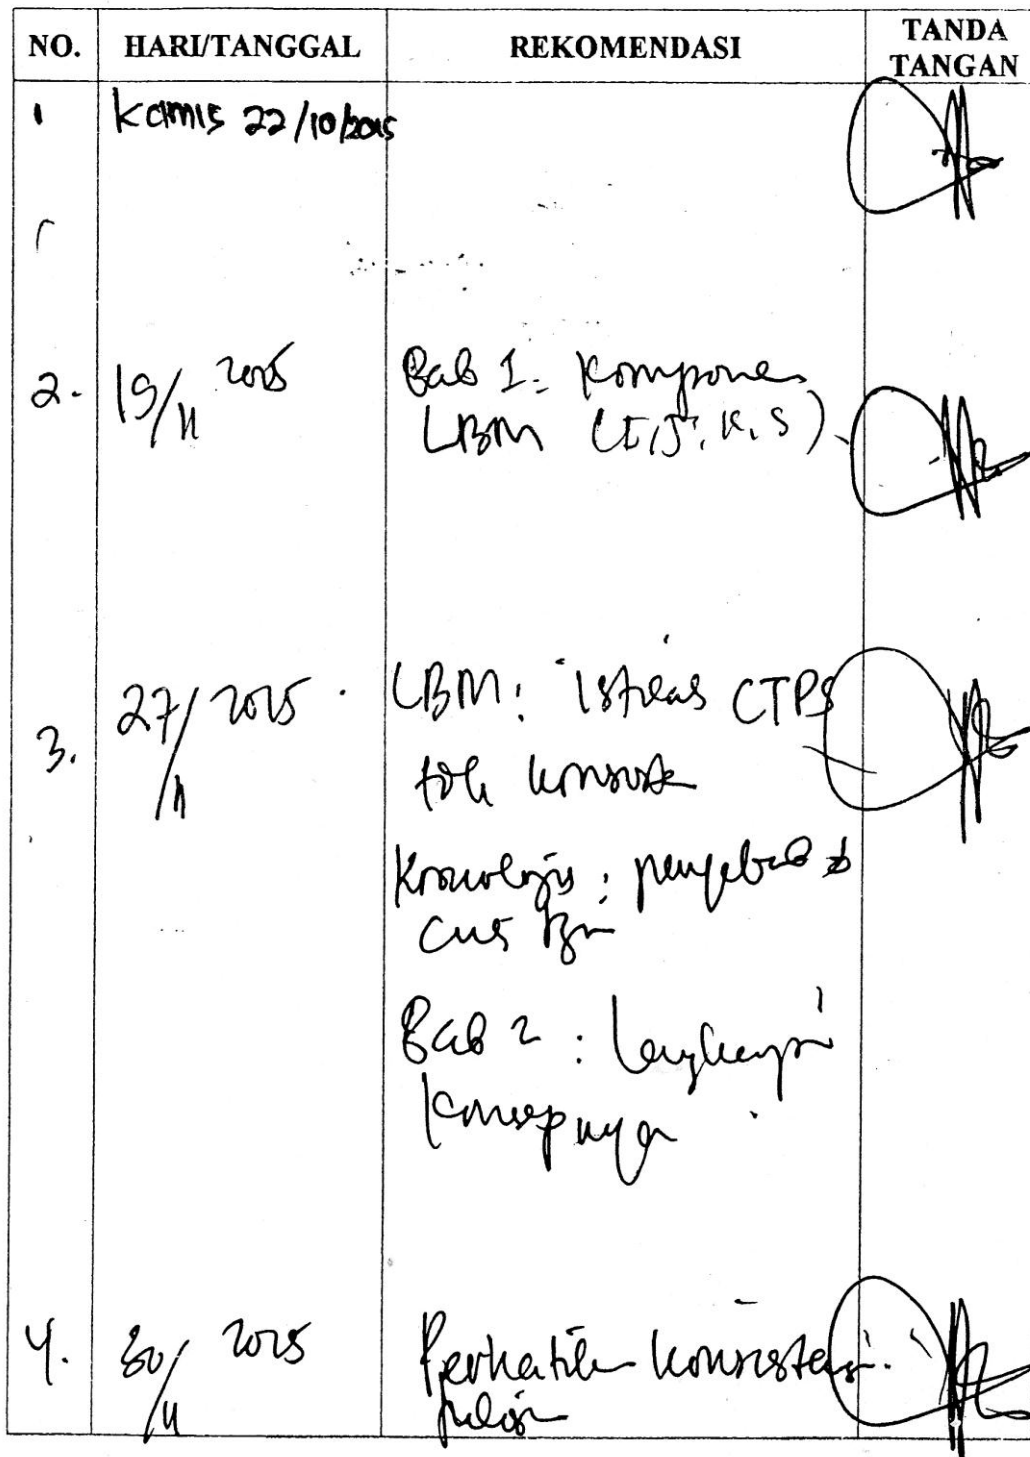 NO. HARI/TANGGAL REKOMENDASI TANDA TANGAN
1 Kamis 22/10/2015
2. 19/11 2015 Bab 1: Komponen
LBM (I, J, K, S)
3. 27/11 2015 LBM: Istilah CTPS
konsist
Kronologis: penyebab
Bab 2: Lengkapi
Konsepnya
4. 30/11 2015 Perhatikan konsistensi